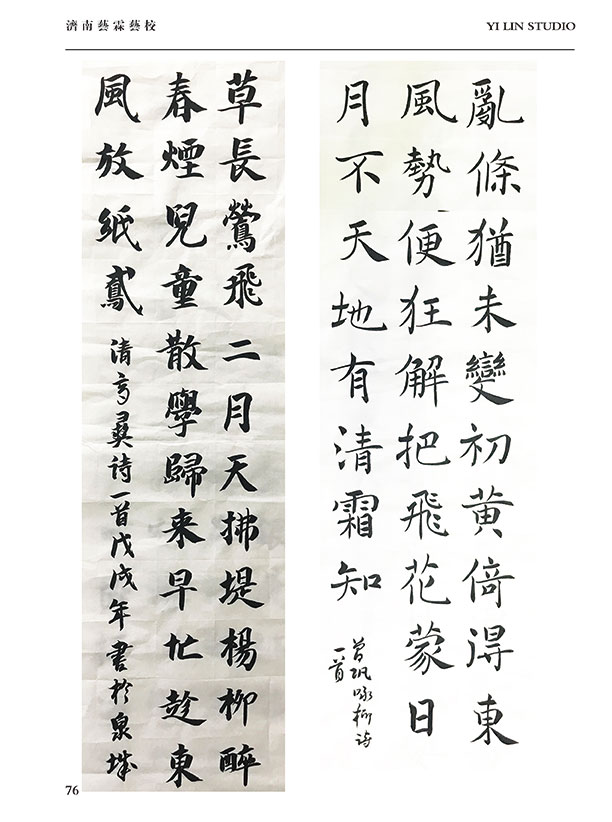 濟南藝霖藝校
YI LIN STUDIO
亂條猶未變初黃倚得東
風勢便狂解把飛花蒙日
月不天地有清霜知
曾巩咏柳诗
一首
草長鶯飛二月天拂堤楊柳醉
春煙兒童散學歸来早忙趂東
風放紙鳶
清高鼎诗一首戊戌年書於泉城
76